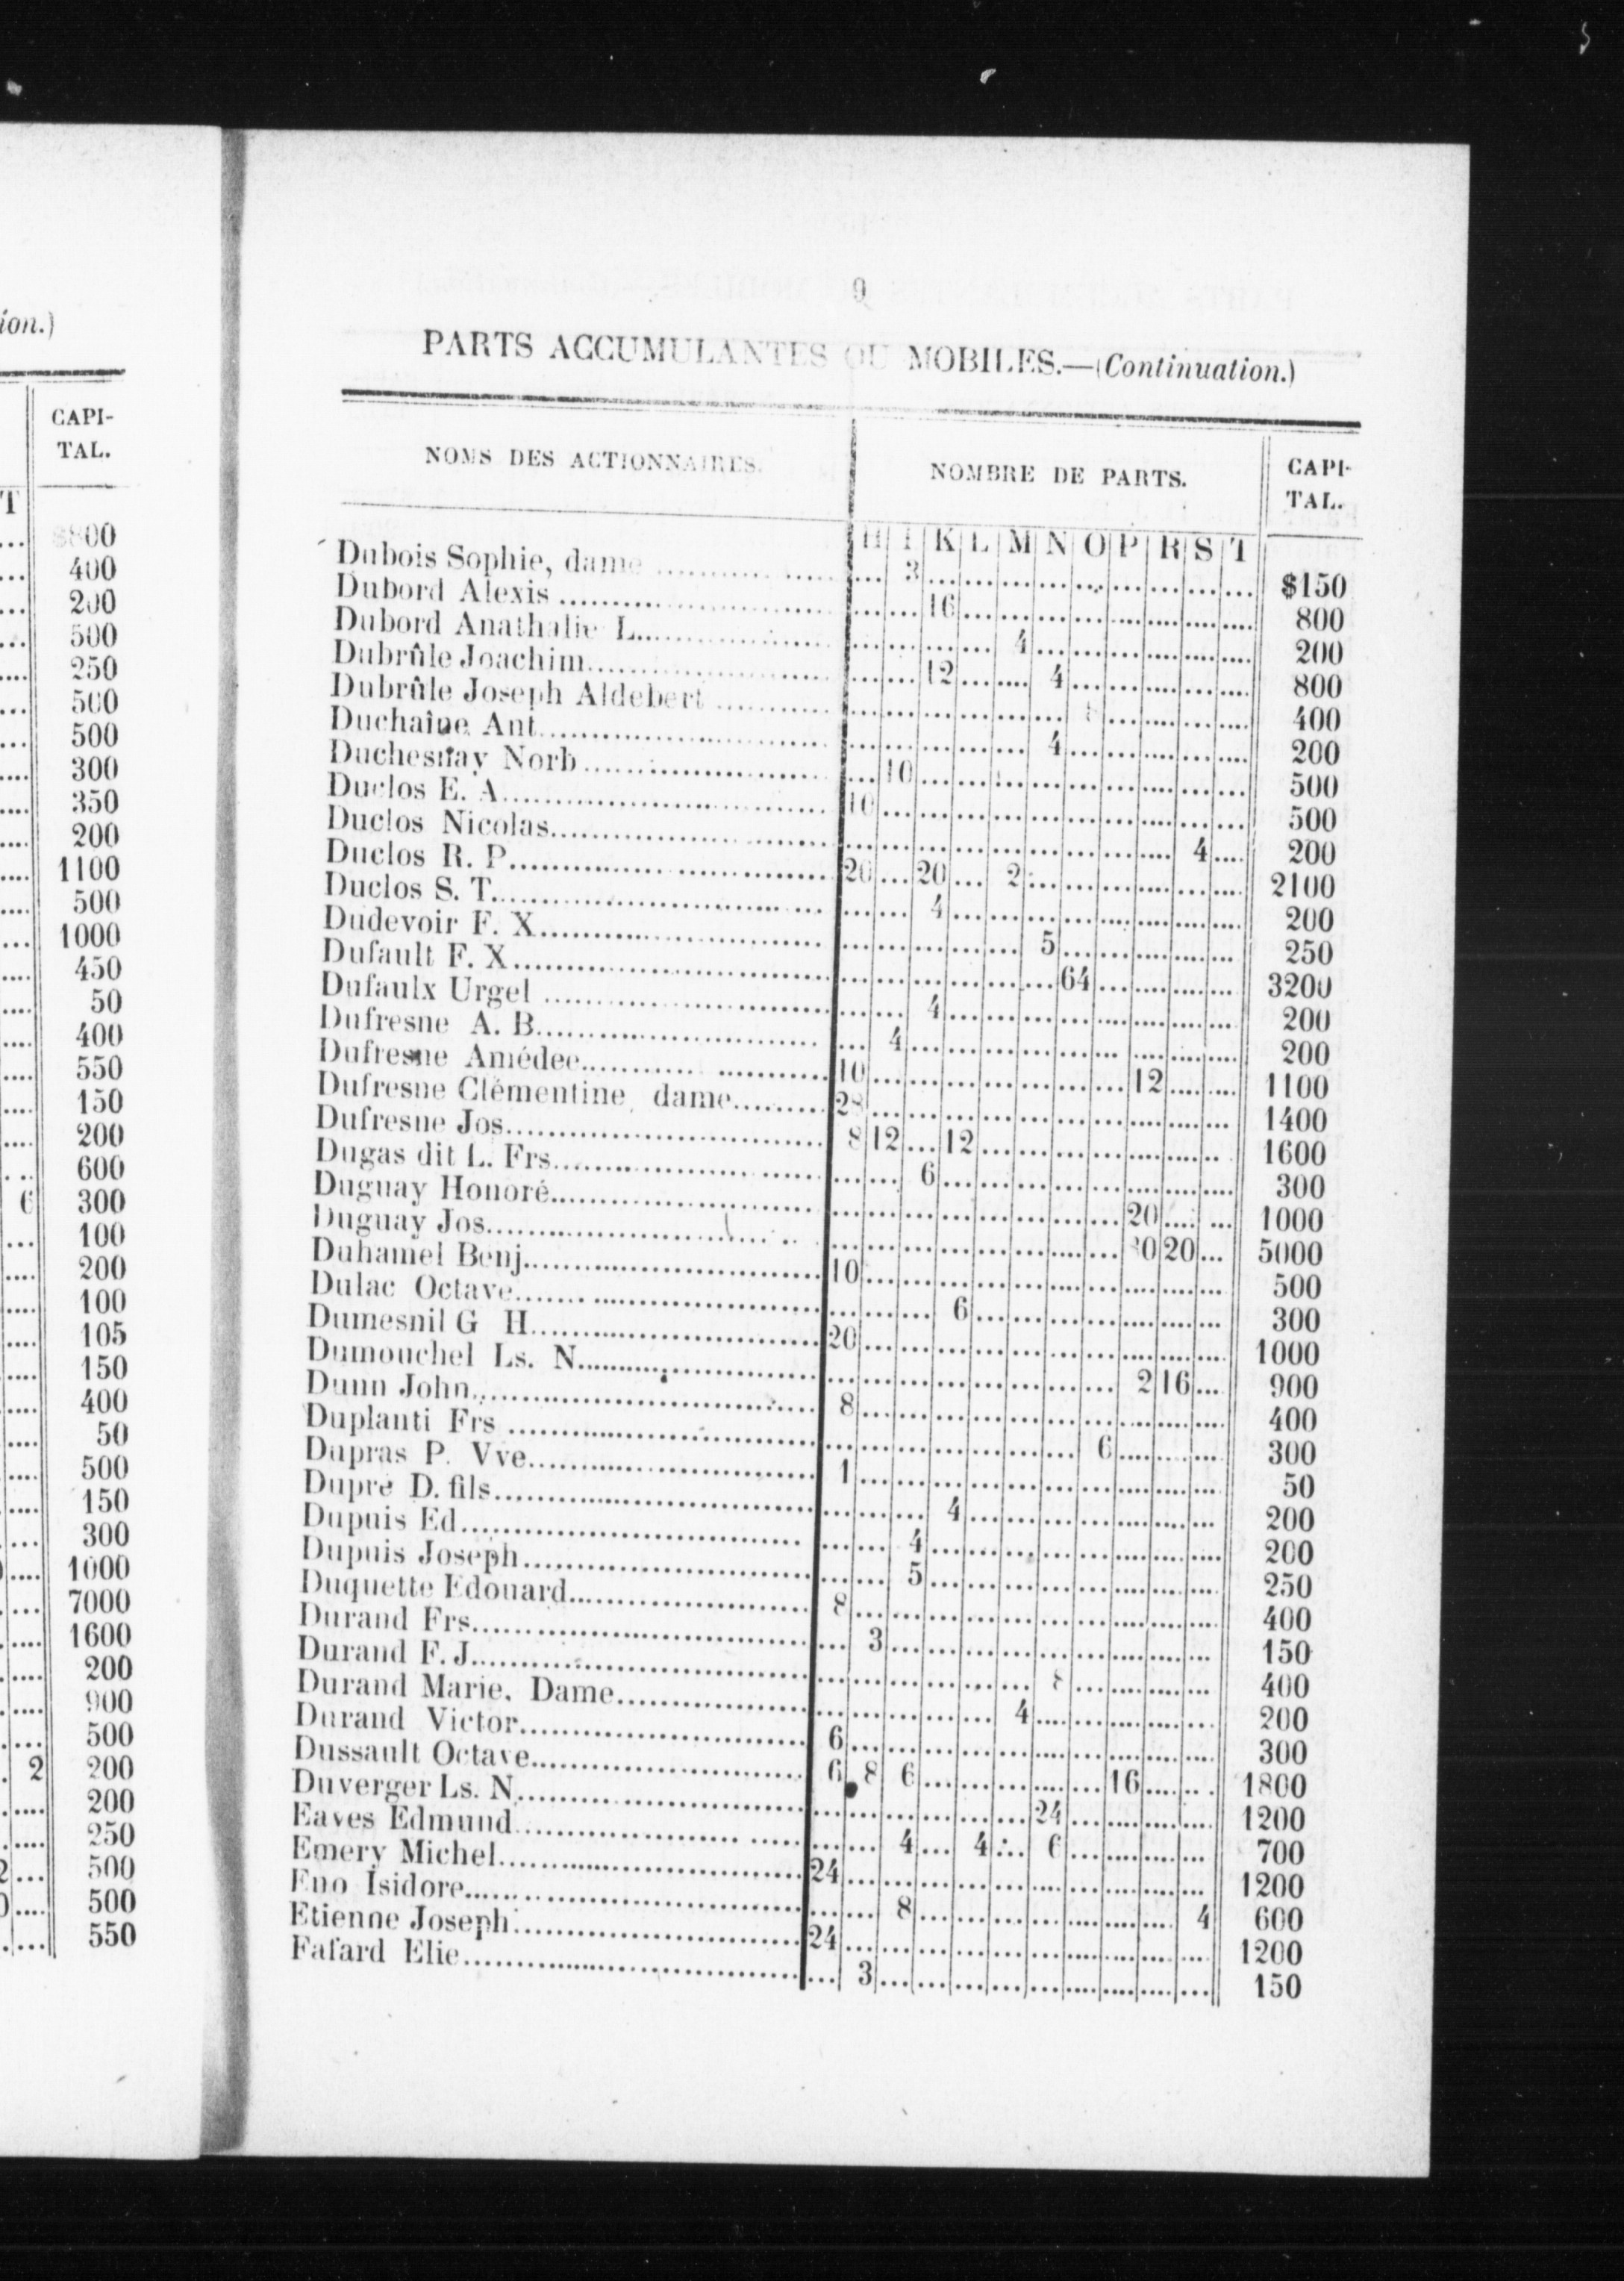 ion.)
CAPI-
TAL.
T
800
400
200
500
250
500
500
300
350
200
1100
500
1000
450
50
400
550
150
200
600
6 300
100
200
100
105
150
400
50
500
150
300
1000
7000
1600
200
900
500
2 200
200
250
500
500
550
9
PARTS ACCUMULANTES OU MOBILES.—(Continuation.)
NOMS DES ACTIONNAIRES. NOMBRE DE PARTS. CAPI-TAL.
H I K L M N O P R S T
Dubois Sophie, dame 3 $150
Dubord Alexis 16 800
Dubord Anathalie L. 4 200
Dubrûle Joachim 12 4 800
Dubrûle Joseph Aldebert 8 400
Duchaine Ant. 4 200
Duchesnay Norb 10 500
Duclos E. A. 10 500
Duclos Nicolas 4 200
Duclos R. P. 20 20 2 2100
Duclos S. T. 4 200
Dudevoir F. X. 5 250
Dufault F. X. 64 3200
Dufaulx Urgel 4 200
Dufresne A. B. 4 200
Dufresne Amédee 10 12 1100
Dufresne Clémentine, dame 28 1400
Dufresne Jos. 8 12 12 1600
Dugas dit L. Frs. 6 300
Duguay Honoré 20 1000
Duguay Jos. 20 5000
Duhamel Benj. 10 500
Dulac Octave 6 300
Dumesnil G H. 20 1000
Dumouchel Ls. N. 2 16 900
Dunn John 8 400
Duplanti Frs 6 300
Dupras P. Vve 1 50
Dupré D. fils 4 200
Dupuis Ed 4 200
Dupuis Joseph 5 250
Duquette Edouard 8 400
Durand Frs. 3 150
Durand F. J. 8 400
Durand Marie, Dame 4 200
Durand Victor 6 300
Dussault Octave 6 8 6 16 1800
Duverger Ls. N. 24 1200
Eaves Edmund 4 4 6 700
Emery Michel 24 1200
Eno Isidore 8 4 600
Etienne Joseph 24 1200
Fafard Elie 3 150